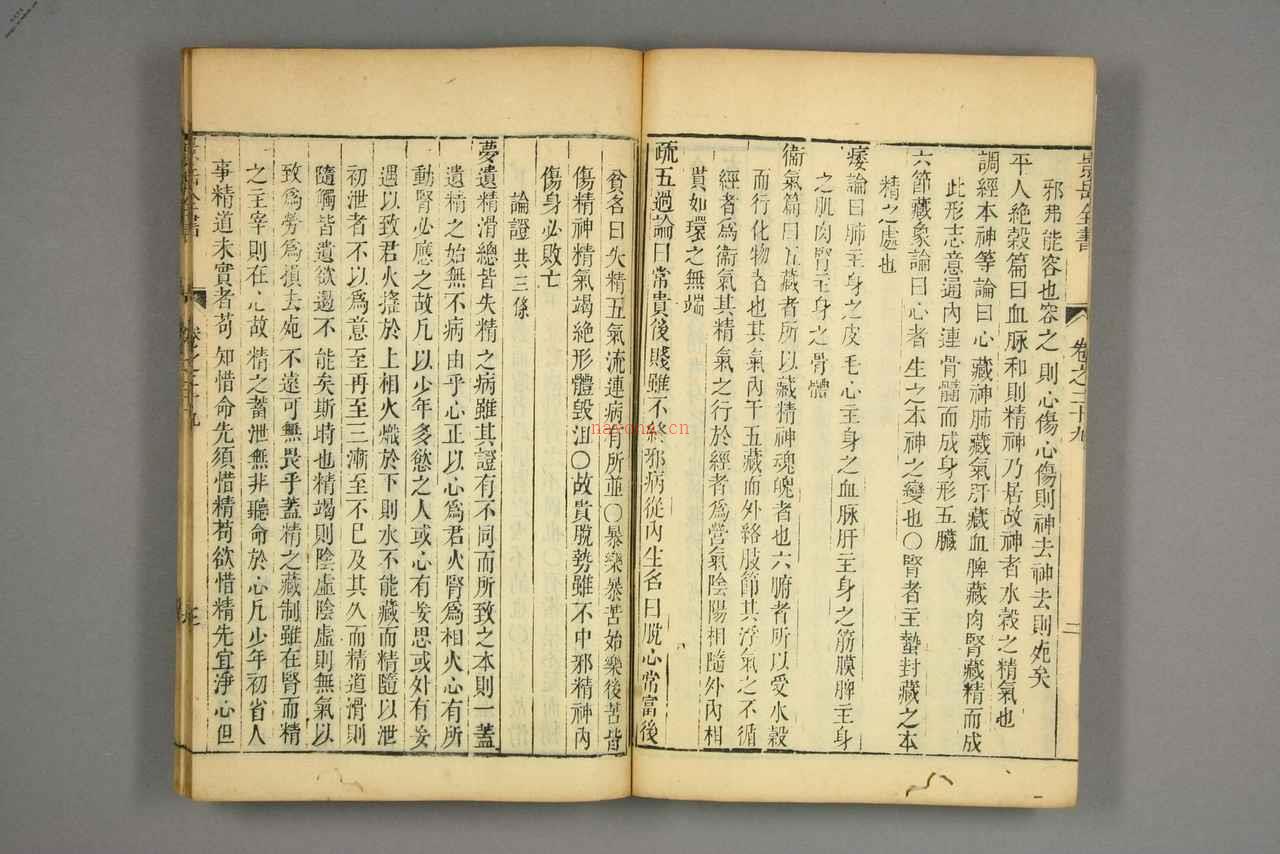 景岳全書 卷之二十九 二
邪弗能容也容之則心傷心傷則神去神去則死矣
平人絶穀篇曰血脉和則精神乃居故神者水穀之精氣也
調經本神等論曰心藏神肺藏氣肝藏血脾藏肉腎藏精而成
此形志意通内連骨髓而成身形五臟
六節藏象論曰心者生之本神之變也〇腎者主蟄封藏之本
精之處也
痿論曰肺主身之皮毛心主身之血脉肝主身之筋膜脾主身
之肌肉腎主身之骨髓
衞氣篇曰五藏者所以藏精神魂魄者也六腑者所以受水穀
而行化物者也其氣内干五藏而外絡肢節其浮氣之不循
經者爲衞氣其精氣之行於經者爲營氣陰陽相隨外内相
貫如環之無端
疏五過論曰常貴後賤雖不終邪病從内生名曰脫心常富後
貧名曰失精五氣流連病有所並〇暴樂暴苦始樂後苦皆
傷精神精氣竭絶形體毁沮〇故貴脫勢雖不中邪精神内
傷身必敗亡
論證 共三條
夢遺精滑總皆失精之病雖其證有不同而所致之本則一蓋
遺精之始無不病由乎心正以心爲君火腎爲相火心有所
動腎必應之故凡以少年多慾之人或心有妄思或外有妄
遇以致君火搖於上相火熾於下則水不能藏而精隨以泄
初泄者不以爲意至再至三漸至不已及其久而精道滑則
隨觸皆遺欲遏不能矣斯時也精竭則陰虛陰虛則無氣以
致爲勞爲損去死不遠可無畏乎蓋精之藏制雖在腎而精
之主宰則在心故精之蓄泄無非聽命於心凡少年初省人
事精道未實者苟知惜命先須惜精苟欲惜精先宜淨心但
nayona.cn